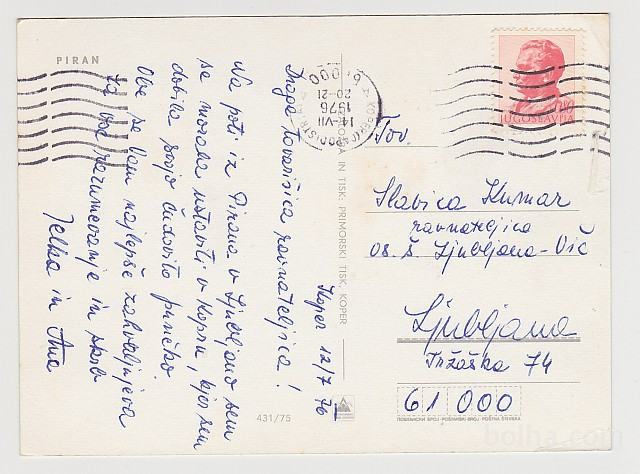 PIRAN
Koper 12/7 76
Draga tovarišica ravnateljica!
Na poti iz Pirana v Ljubljano sem
se morala ustaviti v Kopru, kjer sem
dobila svojo čudovito punčko.
Obe se Vam najlepše zahvaljujeva
za vse razumevanje in skrb
Jelka in Ana
431/75
IN TISK: PRIMORSKI TISK, KOPER
14-VII
1976
20-21
JUGOSLAVIJA
Tov.
Slavica Kumar
ravnateljica
os. š. Ljubljana-Vič
Ljubljana
Tržaška 74
61 000
bolha.com